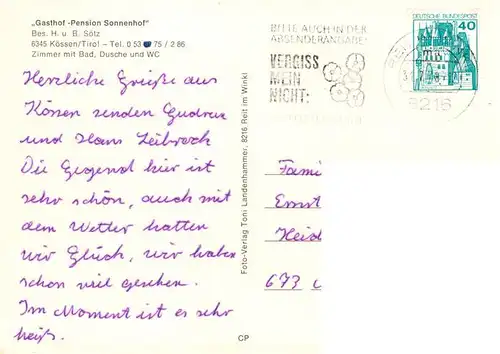 „Gasthof -Pension Sonnenhof"
Bes. H. u. B. Sötz
6345 Kössen/Tirol – Tel. 0 53 75 / 2 86
Zimmer mit Bad, Dusche und WC
Herzliche Grüße aus
Kössen senden Gudrun
und Hans
Die Gegend hier ist
sehr schön, auch mit
dem Wetter hatten
wir Glück, wir haben
schon viel gesehen.
Im Moment ist es sehr
heiß.
CP
Foto-Verlag Toni Landenhammer, 8216 Reit im Winkl
BITTE AUCH IN DER
ABSENDERANGABE!
VERGISS
MEIN
NICHT:
DEUTSCHE BUNDESPOST
40
8216
Fami
Ernst
Heid
673